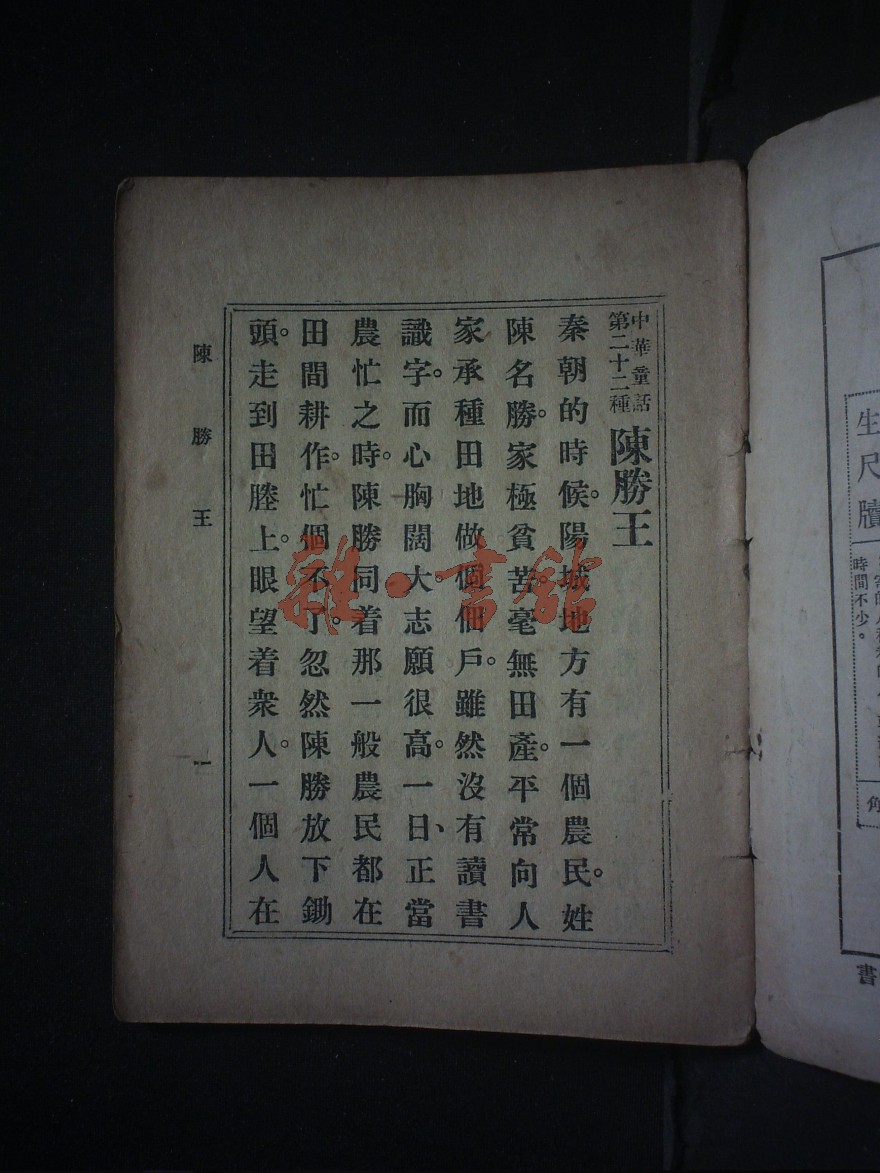 生尺牘
時間不少。
角
書
中華童話
第二十二種
陳勝王
秦朝的時候。陽城地方有一個農民。姓
陳名勝。家極貧苦。毫無田產。平常向人
家承種田地做個佃戶。雖然沒有讀書
識字。而心胸闊大。志願很高。一日、正當
農忙之時。陳勝同着那一般農民都在
田間耕作。忙個不了。忽然陳勝放下鋤
頭。走到田塍上。眼望着衆人。一個人在
陳勝王 一
雜·書館